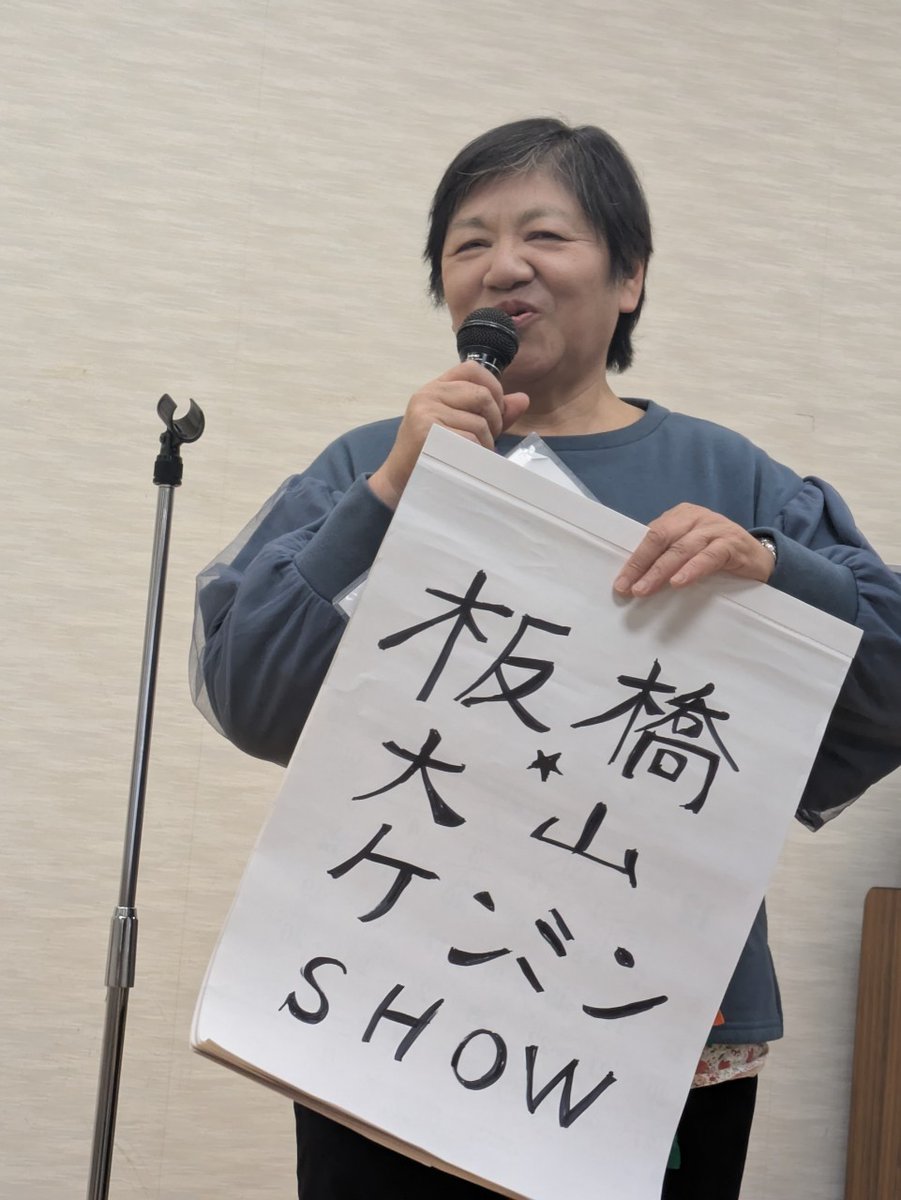 板橋
大★山
ケンバン
SHOW